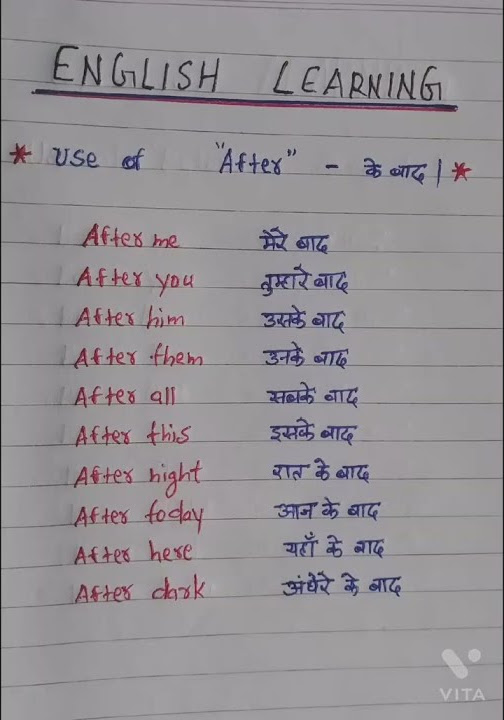 ENGLISH LEARNING
* Use of "After" - के बाद | *
After me मेरे बाद
After you तुम्हारे बाद
After him उसके बाद
After them उनके बाद
After all सबके बाद
After this इसके बाद
After night रात के बाद
After today आज के बाद
After here यहाँ के बाद
After dark अंधेरे के बाद
VITA